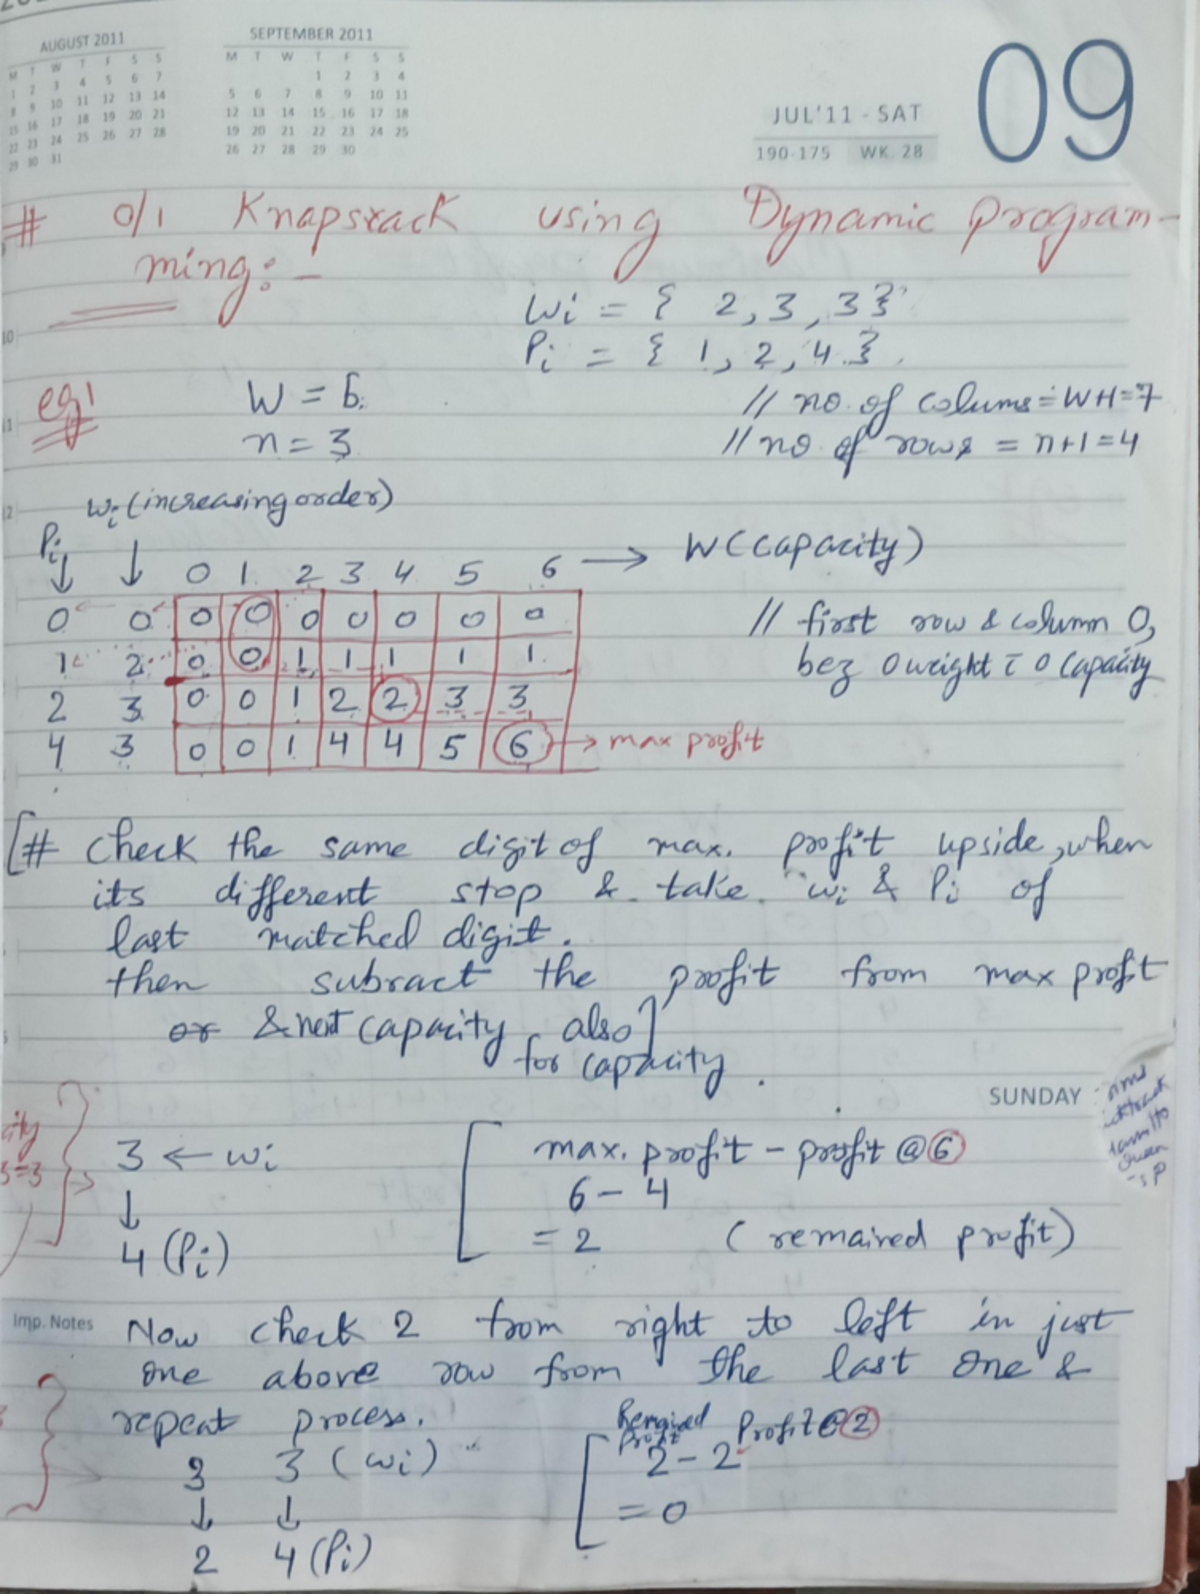 AUGUST 2011
M T W T F S S
1 2 3 4 5 6 7
8 9 10 11 12 13 14
15 16 17 18 19 20 21
22 23 24 25 26 27 28
29 30 31
SEPTEMBER 2011
M T W T F S S
1 2 3 4
5 6 7 8 9 10 11
12 13 14 15 16 17 18
19 20 21 22 23 24 25
26 27 28 29 30
JUL'11 - SAT
190-175 WK. 28
09
# 0/1 Knapsrack using Dynamic Program-
ming:-
Wi = { 2, 3, 3}
Pi = { 1, 2, 4 }
eg1 W = 6
n = 3
// no. of colums = W+1 = 7
// no of rows = n+1 = 4
wi (increasing order)
Pi
0 1 2 3 4 5 6 → W (capacity)
0 0 0 0 0 0 0 0 0
1 2 0 0 1 1 1 1 1
2 3 0 0 1 2 2 3 3
4 3 0 0 1 4 4 5 6 → max profit
// first row & column 0,
bcz 0 weight c̄ 0 capacity
[# check the same digit of max. profit upside, when
its different stop & take wi & Pi of
last matched digit.
then subract the profit from max profit
or & next capacity also]
for capacity.
SUNDAY
3 ← wi
↓
4 (Pi)
max. profit - profit @ 6
6 - 4
= 2 ( remained profit )
Imp. Notes
Now check 2 from right to left in just
one above row from the last one &
repeat process.
3 3 (wi)
↓ ↓
2 4 (Pi)
Remained Profit Profit @ 2
2 - 2
= 0